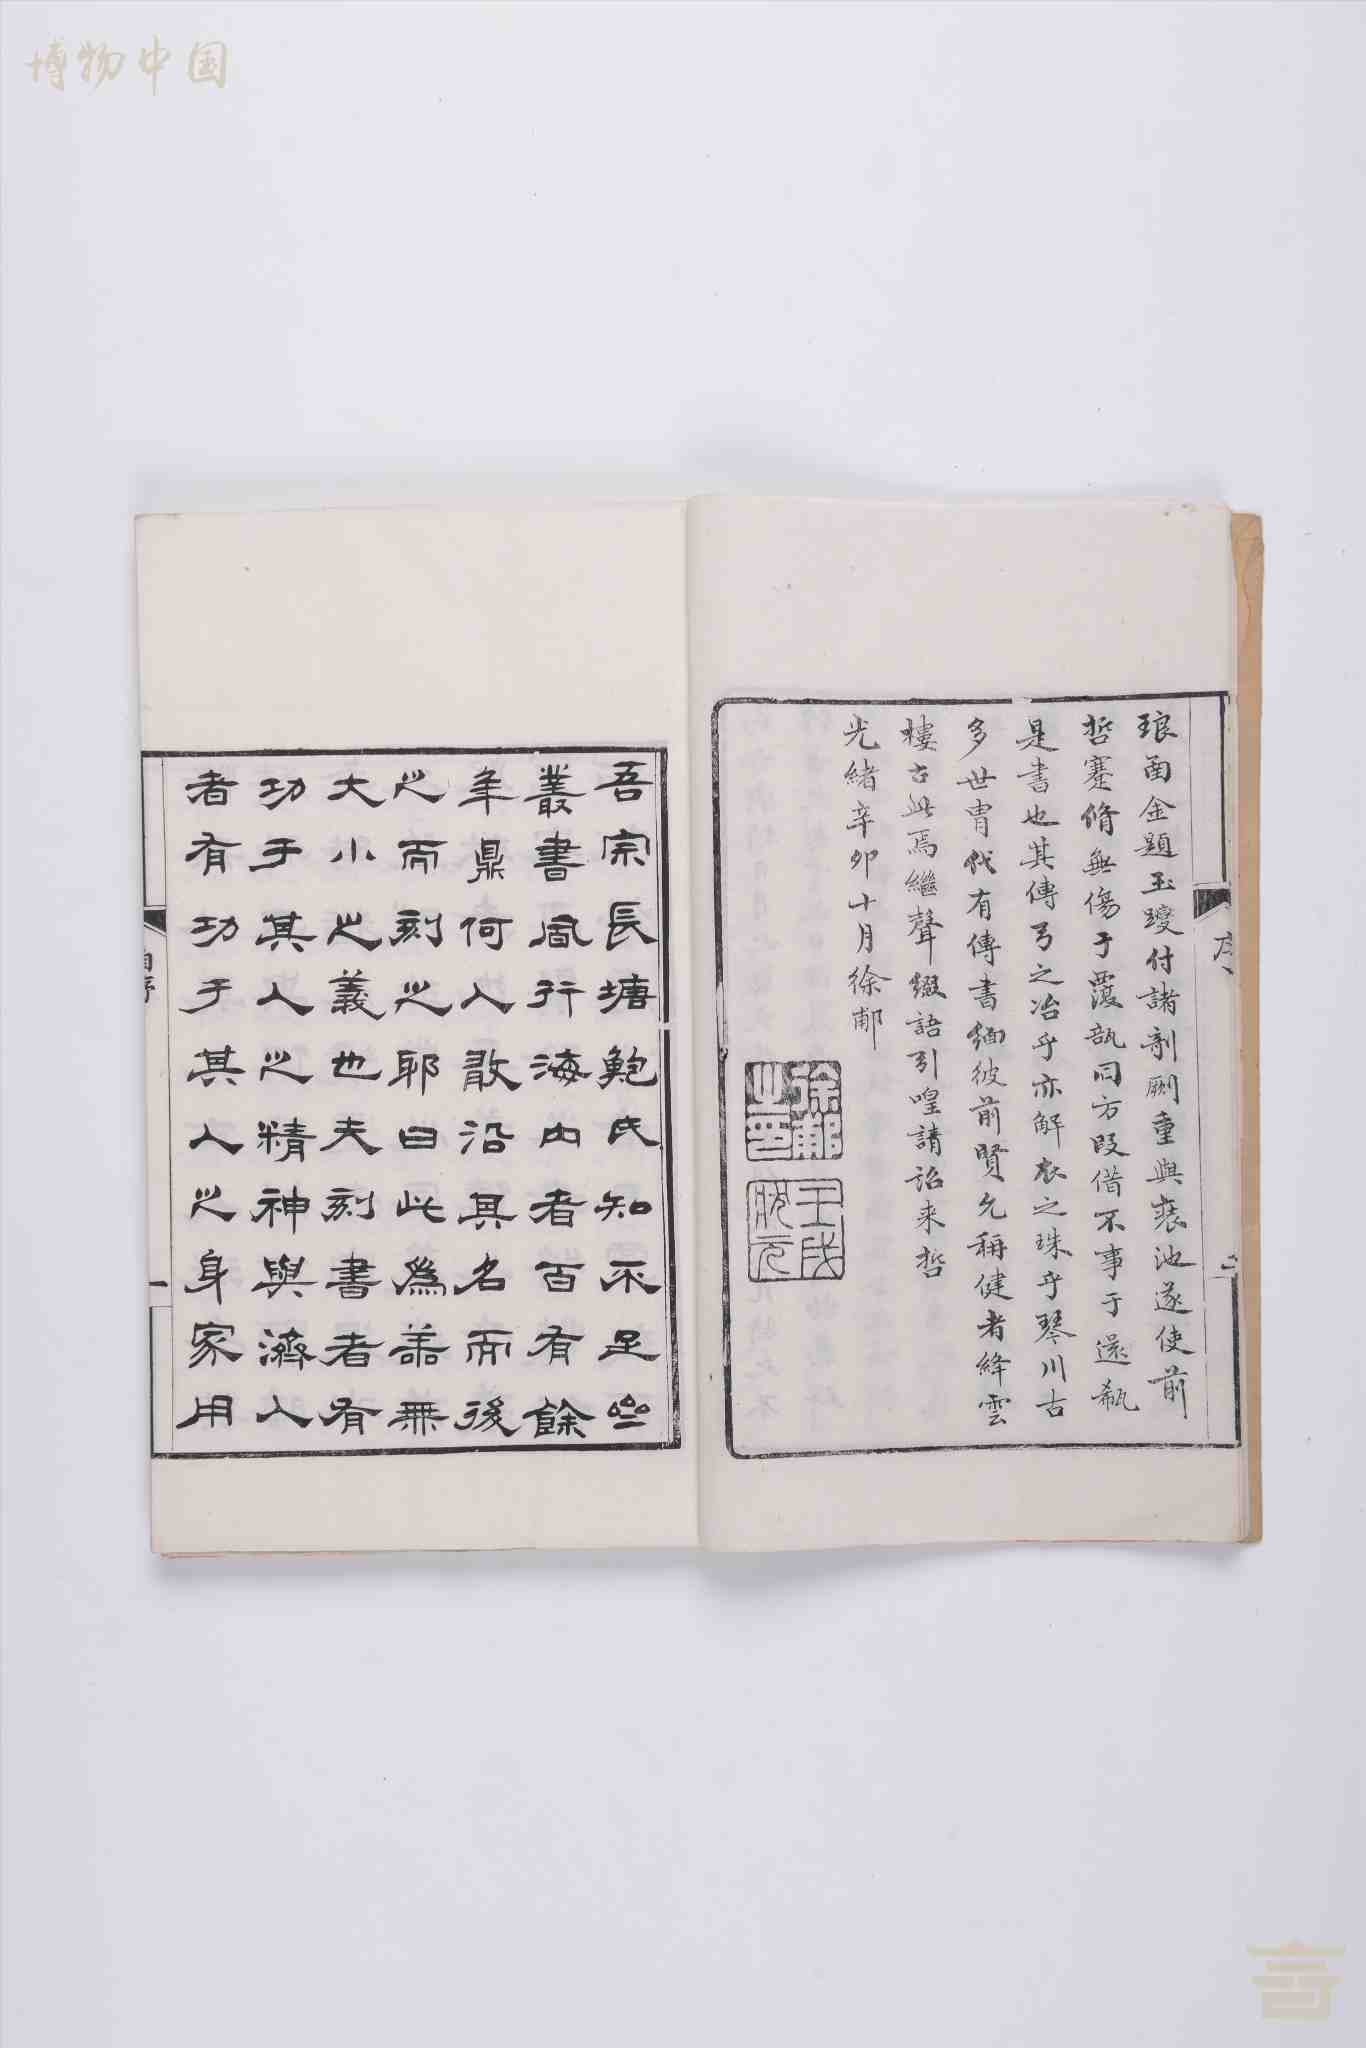 博物中国
琅函金題玉躞付諸剞劂重與裝池遂使前
哲蹇脩無傷于覆瓿同方叚借不事于還瓻
是書也其傳弓之冶乎亦解衣之珠乎琴川古
多世胄代有傳書緬彼前賢允稱健者絳雲
樓古此焉繼聲綴語引喤請詒來哲
光緒辛卯十月徐郙
徐郙之印
壬戌狀元
序
二
吾宗長塘鮑氏知不足齋
叢書風行海內者百有餘
年鼎何人敢沿其名而後
之而刻之耶曰此為善無
大小之義也夫刻書者有
功于其人之精神與濟人
者有功于其人之身家用
自序
一